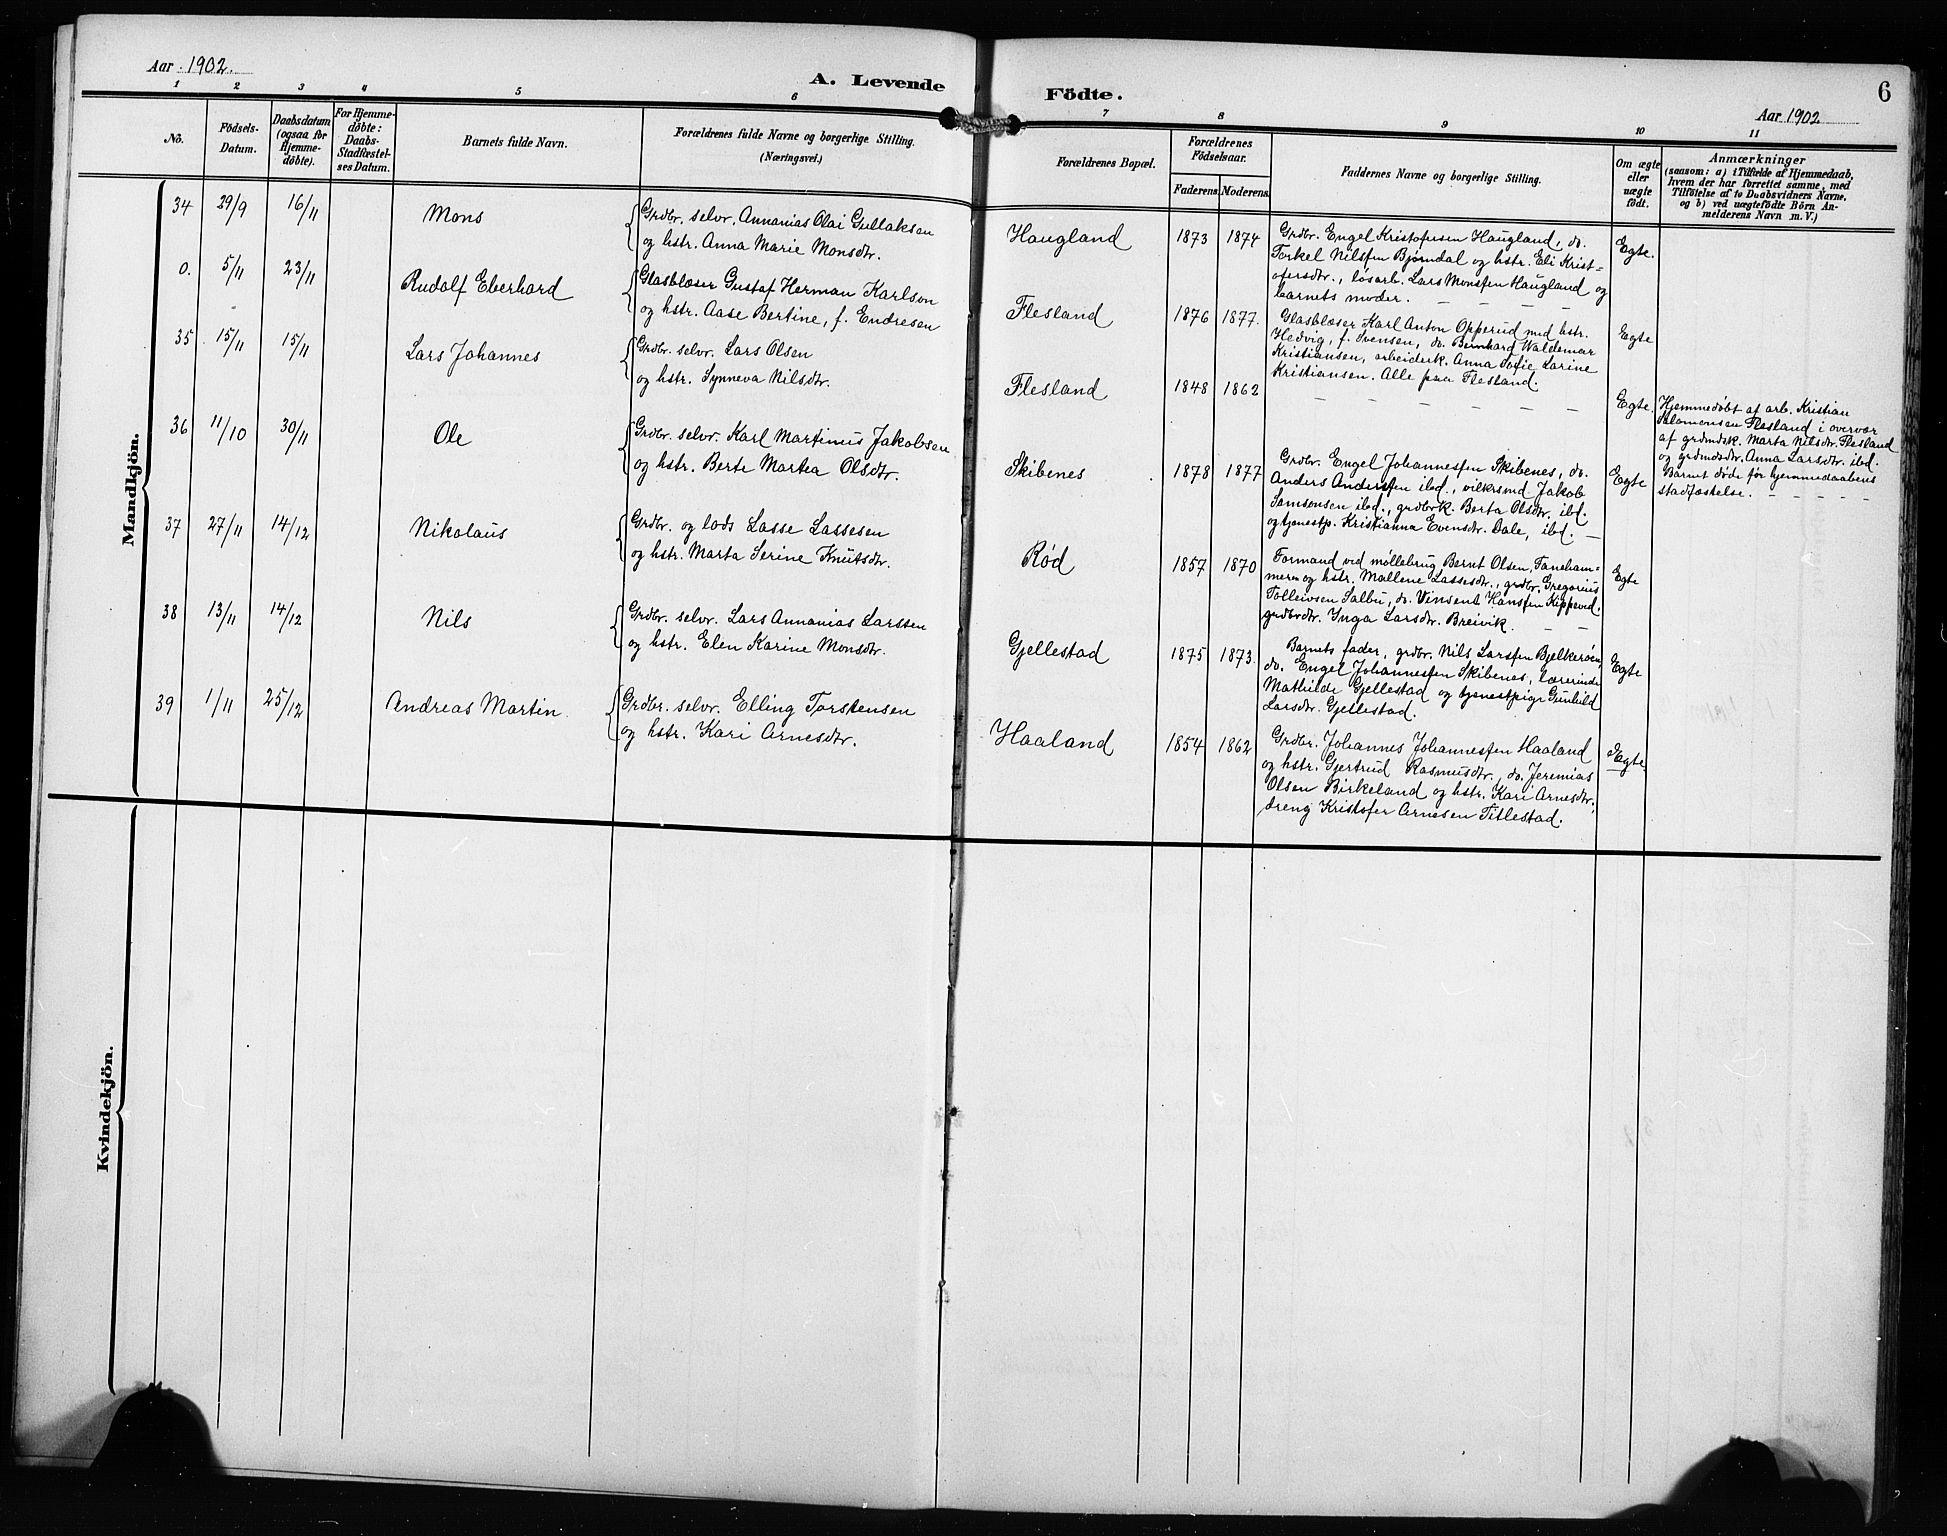 Aar 1902.
A. Levende Födte.
6
Aar 1902
1 2 3 4 5 6 7 8 9 10 11
No.
Födsels-
Datum.
Daabsdatum
(ogsaa for
Hjemme-
döbte).
For Hjemme-
döbte:
Daabs-
Stadfæstel-
ses Datum.
Barnets fulde Navn.
Forældrenes fulde Navne og borgerlige Stilling.
(Næringsvei.)
Forældrenes Bopæl.
Forældrenes
Födselsaar.
Faderens. Moderens.
Faddernes Navne og borgerlige Stilling.
Om ægte
eller
uægte
födt.
Anmærkninger
(saasom: a) i Tilfælde af Hjemmedaab,
hvem der har forrettet samme, med
Tilföielse af to Daabsvidners Navne,
og b) ved uægtefödte Börn An-
melderens Navn m. V.)
Mandkjön.
34 29/9 16/11 Mons
Grdbr. selvr. Annanias Olai Gullaksen
og hstr. Anna Marie Monsdtr.
Haugland 1873 1874
Grdbr. Engel Kristofersen Haugland, do.
Torkel Nilssen Bjørndal og hstr. Eli Krist=
ofersdtr., løsarb. Lars Monssen Haugland og
barnets moder. — — —
Egte.
0. 5/11 23/11 Rudolf Eberhard
Glasblæser Gustaf Herman Karlson
og hstr. Aase Bertine, f. Endresen
Flesland 1876 1877.
Glasblæser Karl Anton Opperud med hstr.
Hedvig, f. Svensen, do. Bernhard Waldemar
Kristiansen, arbeiderk. Anna Sofie Larine
Kristiansen. Alle paa Flesland.
Egte
35 15/11 15/11 Lars Johannes
Grdbr. selvr. Lars Olsen
og hstr. Synneva Nilsdtr.
Flesland 1848 1862
— — — — — — —
Egte.
Hjemmedøbt af arb. Kristian
Salomonsen Flesland i overvær
af grdmdsk. Marta Nilsdtr. Flesland
og grdmdsdtr. Anna Larsdtr. ibd.
Barnet døde før hjemmedaabens
stadfæstelse. — — — — —
36 11/10 30/11 Ole
Grdbr. selvr. Karl Martinus Jakobsen
og hstr. Berte Martea Olsdtr.
Skibenes 1878 1877
Grdbr. Engel Johannessen Skibenes, do.
Anders Anderssen ibd., vilkrsmd Jakob
Samsonsen ibd., grdbrk. Berta Olsdtr. ibd.
og tjenestp. Kristianna Evensdtr. Dale, ibd. —
Egte
37 27/11 14/12 Nikolaus
Grdbr. og lods Lasse Lassesen
og hstr. Marta Serine Knutsdtr.
Rød 1857 1870
Formand ved møllebrug Bernt Olsen, Taneham-
meren og hstr. Mallene Lassesdtr., grdbr. Gregorius
Tolleivsen Salbu, do. Vinsent Hanssen Kippevid,
grdbrdtr. Inga Larsdtr. Breivik. — —
Egte
38 13/11 14/12 Nils
Grdbr. selvr. Lars Annanias Larssen
og hstr. Elen Karine Monsdtr.
Gjellestad 1875 1873.
Barnets fader, grdbr. Nils Larssen Bjelkerøen,
do. Engel Johannessen Skibenes, lærerinde
Mathilde Gjellestad og tjenestpige Gunhild
Larsdtr. Gjellestad.
Egte
39 1/11 25/12 Andreas Martin.
Grdbr. selvr. Elling Torstensen
og hstr. Kari Arnesdtr.
Haaland 1854 1862
Grdbr. Johannes Johannessen Haaland
og hstr. Gjertrud Rasmusdtr., do. Jeremias
Olsen Birkeland og hstr. Kari Arnesdtr.,
dreng Kristofer Arnesen Titlestad.
Egte.
Kvindekjön.